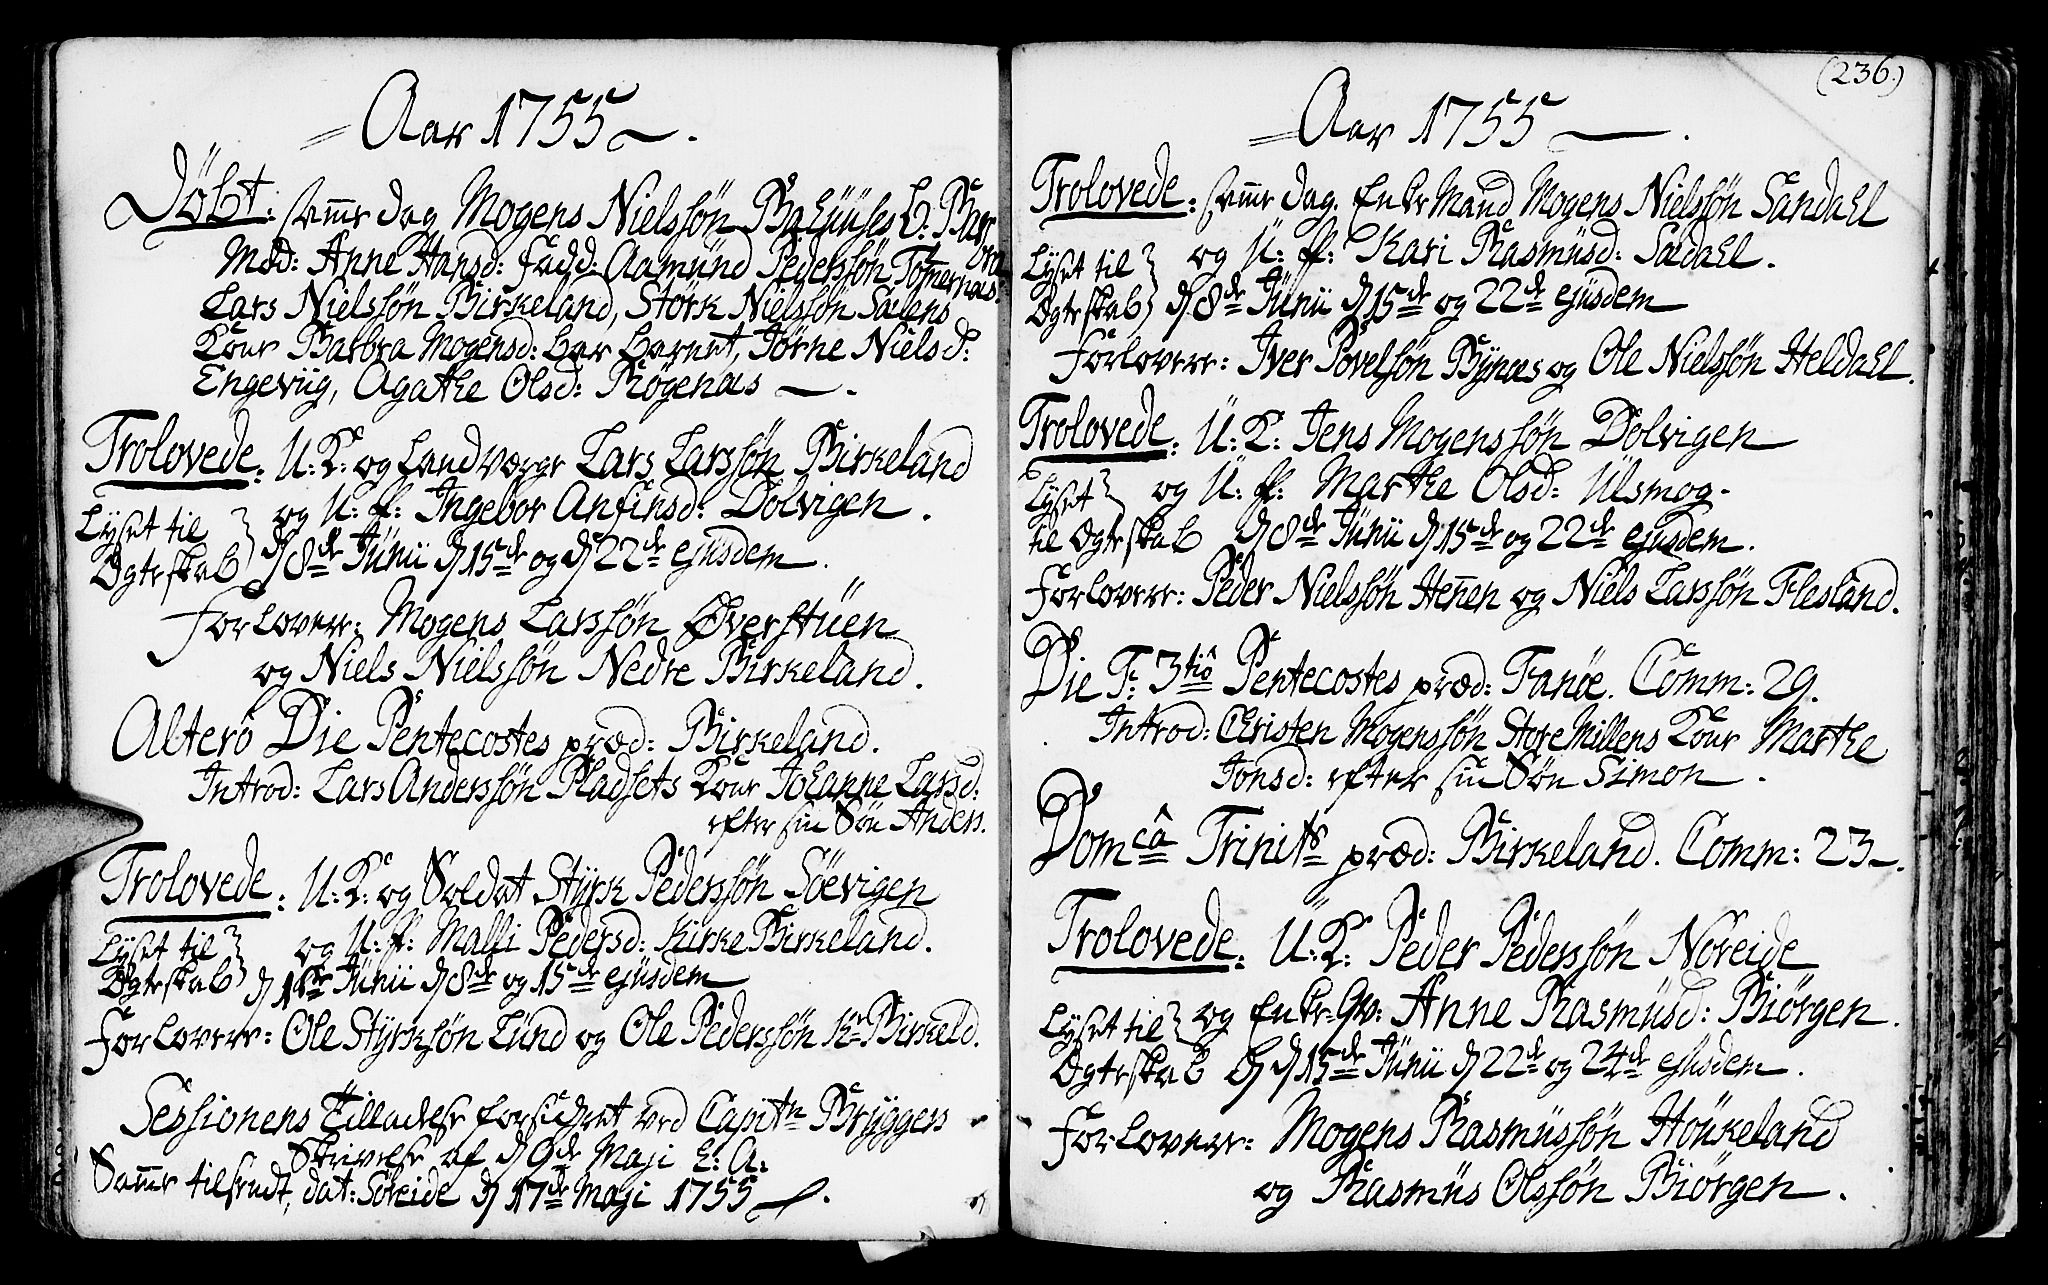 Aar 1755.
Döbt: samme dag Mogens Nielssön Bahuuses B: Bar
bra
Mod: Anne Hansd: Fadd: Aamund Pederssön Tömernæs
Lars Nielssön Birkeland, Störk Nielssön Sælens
Kone Barbra Mogensd: bar barnet, Jörne Nielsd:
Engeviig, Agathe Olsd: Rögenæs.
Trolovede: U: K: og Landværge Lars Larssön Birkeland
og U: f: Ingebor Anfinsd: Dolvigen.
Lyset til
Ægteskab d 8de Junii d 15de og d 22de ejusdem.
Forlovere: Mogens Larssön Øverstuen
og Niels Nielssön Nedre Birkeland.
Alterô Die Pentecostes præd: Birkeland.
Introd: Lars Anderssön Pladsets Kone Johanne Larsd:
efter sin Sön Anders.
Trolovede: U: K: og Soldat Styrk Pederssön Söevigen
og U: f: Malli Pedersd: Kirke Birkeland.
Lyset til
Ægteskab d 1ste Junii d 8de og 15de ejusdem
Forlovere: Ole Styrksön Lund og Ole Pederssön K. Birkeld.
Sessionens Tilladelse forsichret ved Capitn Bryggers
Skrivelse af d 9de Maji h: A:
Samme tilsendt, dat: Söreide d 17de Maji 1755.
(236.)
Aar 1755.
Trolovede: samme dag. Enke Mand Mogens Nielssön Sandahl
og U: f: Kari Rasmusd: Sædahl.
Lyset til
Ægteskab d 8de Junii d 15de og 22de ejusdem
Forlovere: Iver Povelsön Bynæs og Ole Nielssön Heldahl.
Trolovede: U: K: Jens Mogenssön Dolvigen
og U: f: Marthe Olsd: Ulsmog.
Lyset
til Ægteskab d 8de Junii d 15de og 22de ejusdem.
Forlovere: Peder Nielssön Henen og Niels Larssön Flesland.
Die F: 3tiô Pentecostes præd: Fanöe. Comm: 29.
Introd: Christen Mogenssön Store Millens Kone Marthe
Jonsd: efter sin Sön Simon.
Domcâ Trinits præd: Birkeland. Comm: 23.
Trolovede: U: K: Peder Pederssön Noreide
og Enke-Qv: Anne Rasmusd: Biörgen.
Lyset til
Ægteskab d 15de Junii d 22de og 24de ejusdem.
Forlovere: Mogens Rasmussön Höukeland
og Rasmus Olssön Biörgen.